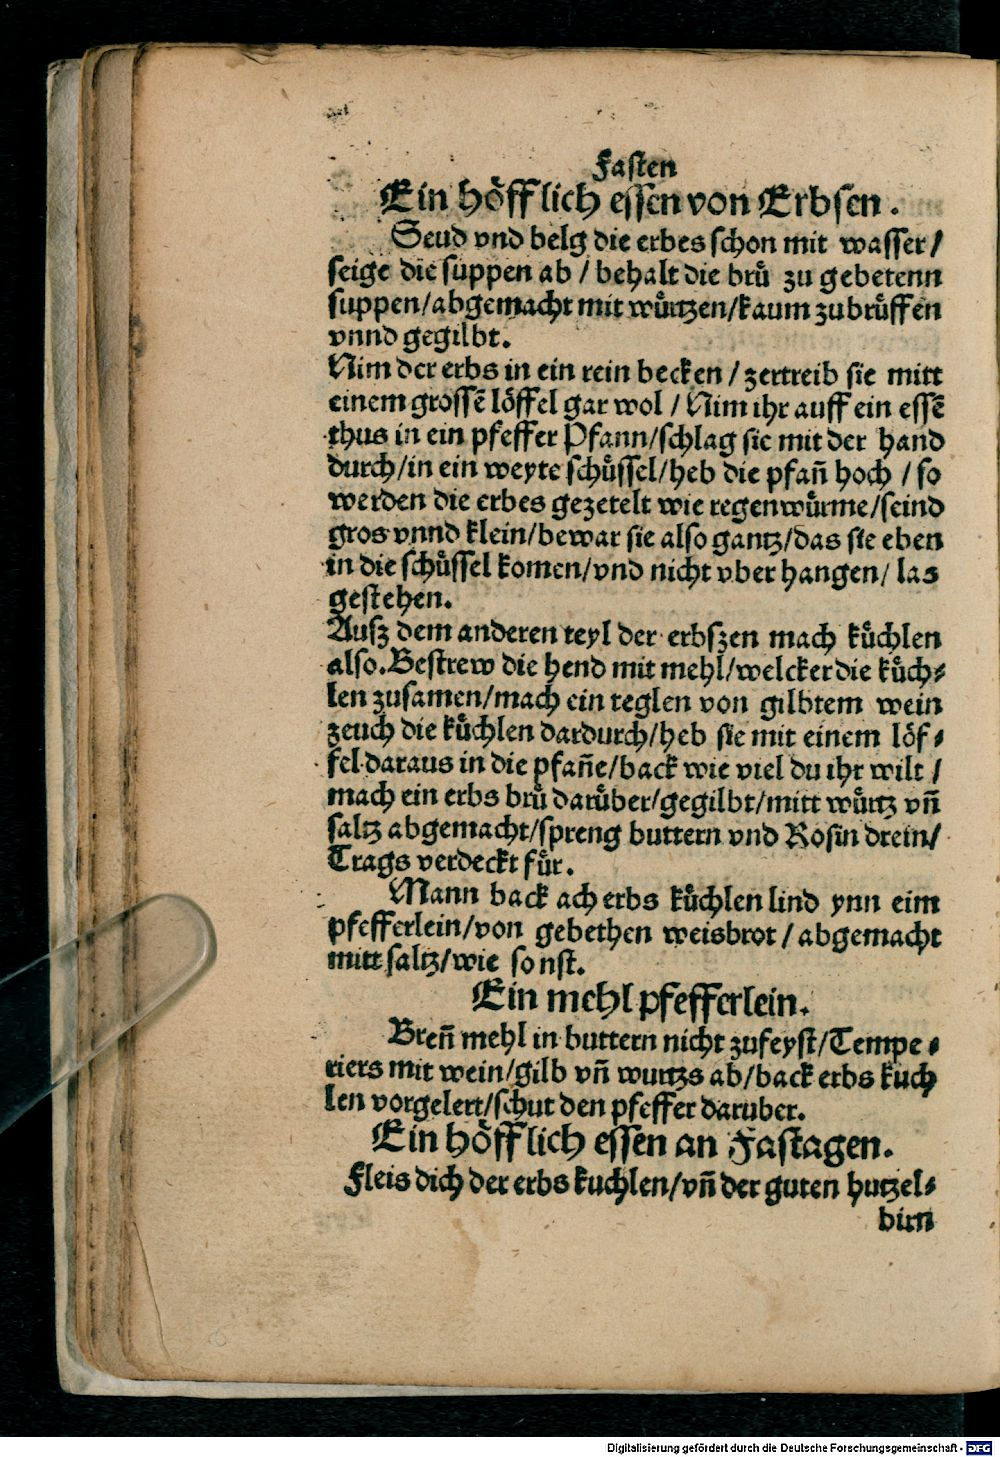 Fasten
Ein höfflich essen von Erbsen.
Seud vnd belg die erbes schon mit wasser/
seige die suppen ab / behalt die brů zu gebetenn
suppen/abgemacht mit wůrtzen/kaum zubrůffen
vnnd gegilbt.
Nim der erbs in ein rein becken / zertreib sie mitt
einem grossē lôffel gar wol / Nim ihr auff ein essē
thus in ein pfeffer Pfann/schlag sie mit der hand
durch/in ein weyte schůssel/heb die pfañ hoch / so
werden die erbes gezetelt wie regenwůrme/seind
gros vnnd klein/bewar sie also gantz/das sie eben
in die schůssel komen/vnd nicht vber hangen/ las
gestehen.
Ausz dem anderen teyl der erbszen mach kůchlen
also. Bestrew die hend mit mehl/welcker die kůch⸗
len zusamen/mach ein teglen von gilbtem wein
zeuch die kůchlen dardurch/heb sie mit einem lôf⸗
fel daraus in die pfañe/back wie viel du ihr wilt /
mach ein erbs brů darůber/gegilbt/mitt wůrtz vñ
saltz abgemacht/spreng buttern vnd Rosin drein/
Trags verdeckt fůr.
Mann back ach erbs kůchlen lind ynn eim
pfefferlein/von gebethen weisbrot / abgemacht
mitt saltz/wie sonst.
Ein mehl pfefferlein.
Breñ mehl in buttern nicht zufeyst/Tempe⸗
riers mit wein/gilb vñ wurtzs ab/back erbs kuch
len vorgelert/schut den pfeffer daruber.
Ein höfflich essen an Fastagen.
Fleis dich der erbs kuchlen/vñ der guten hutzel⸗
birn
Digitalisierung gefördert durch die Deutsche Forschungsgemeinschaft - DFG